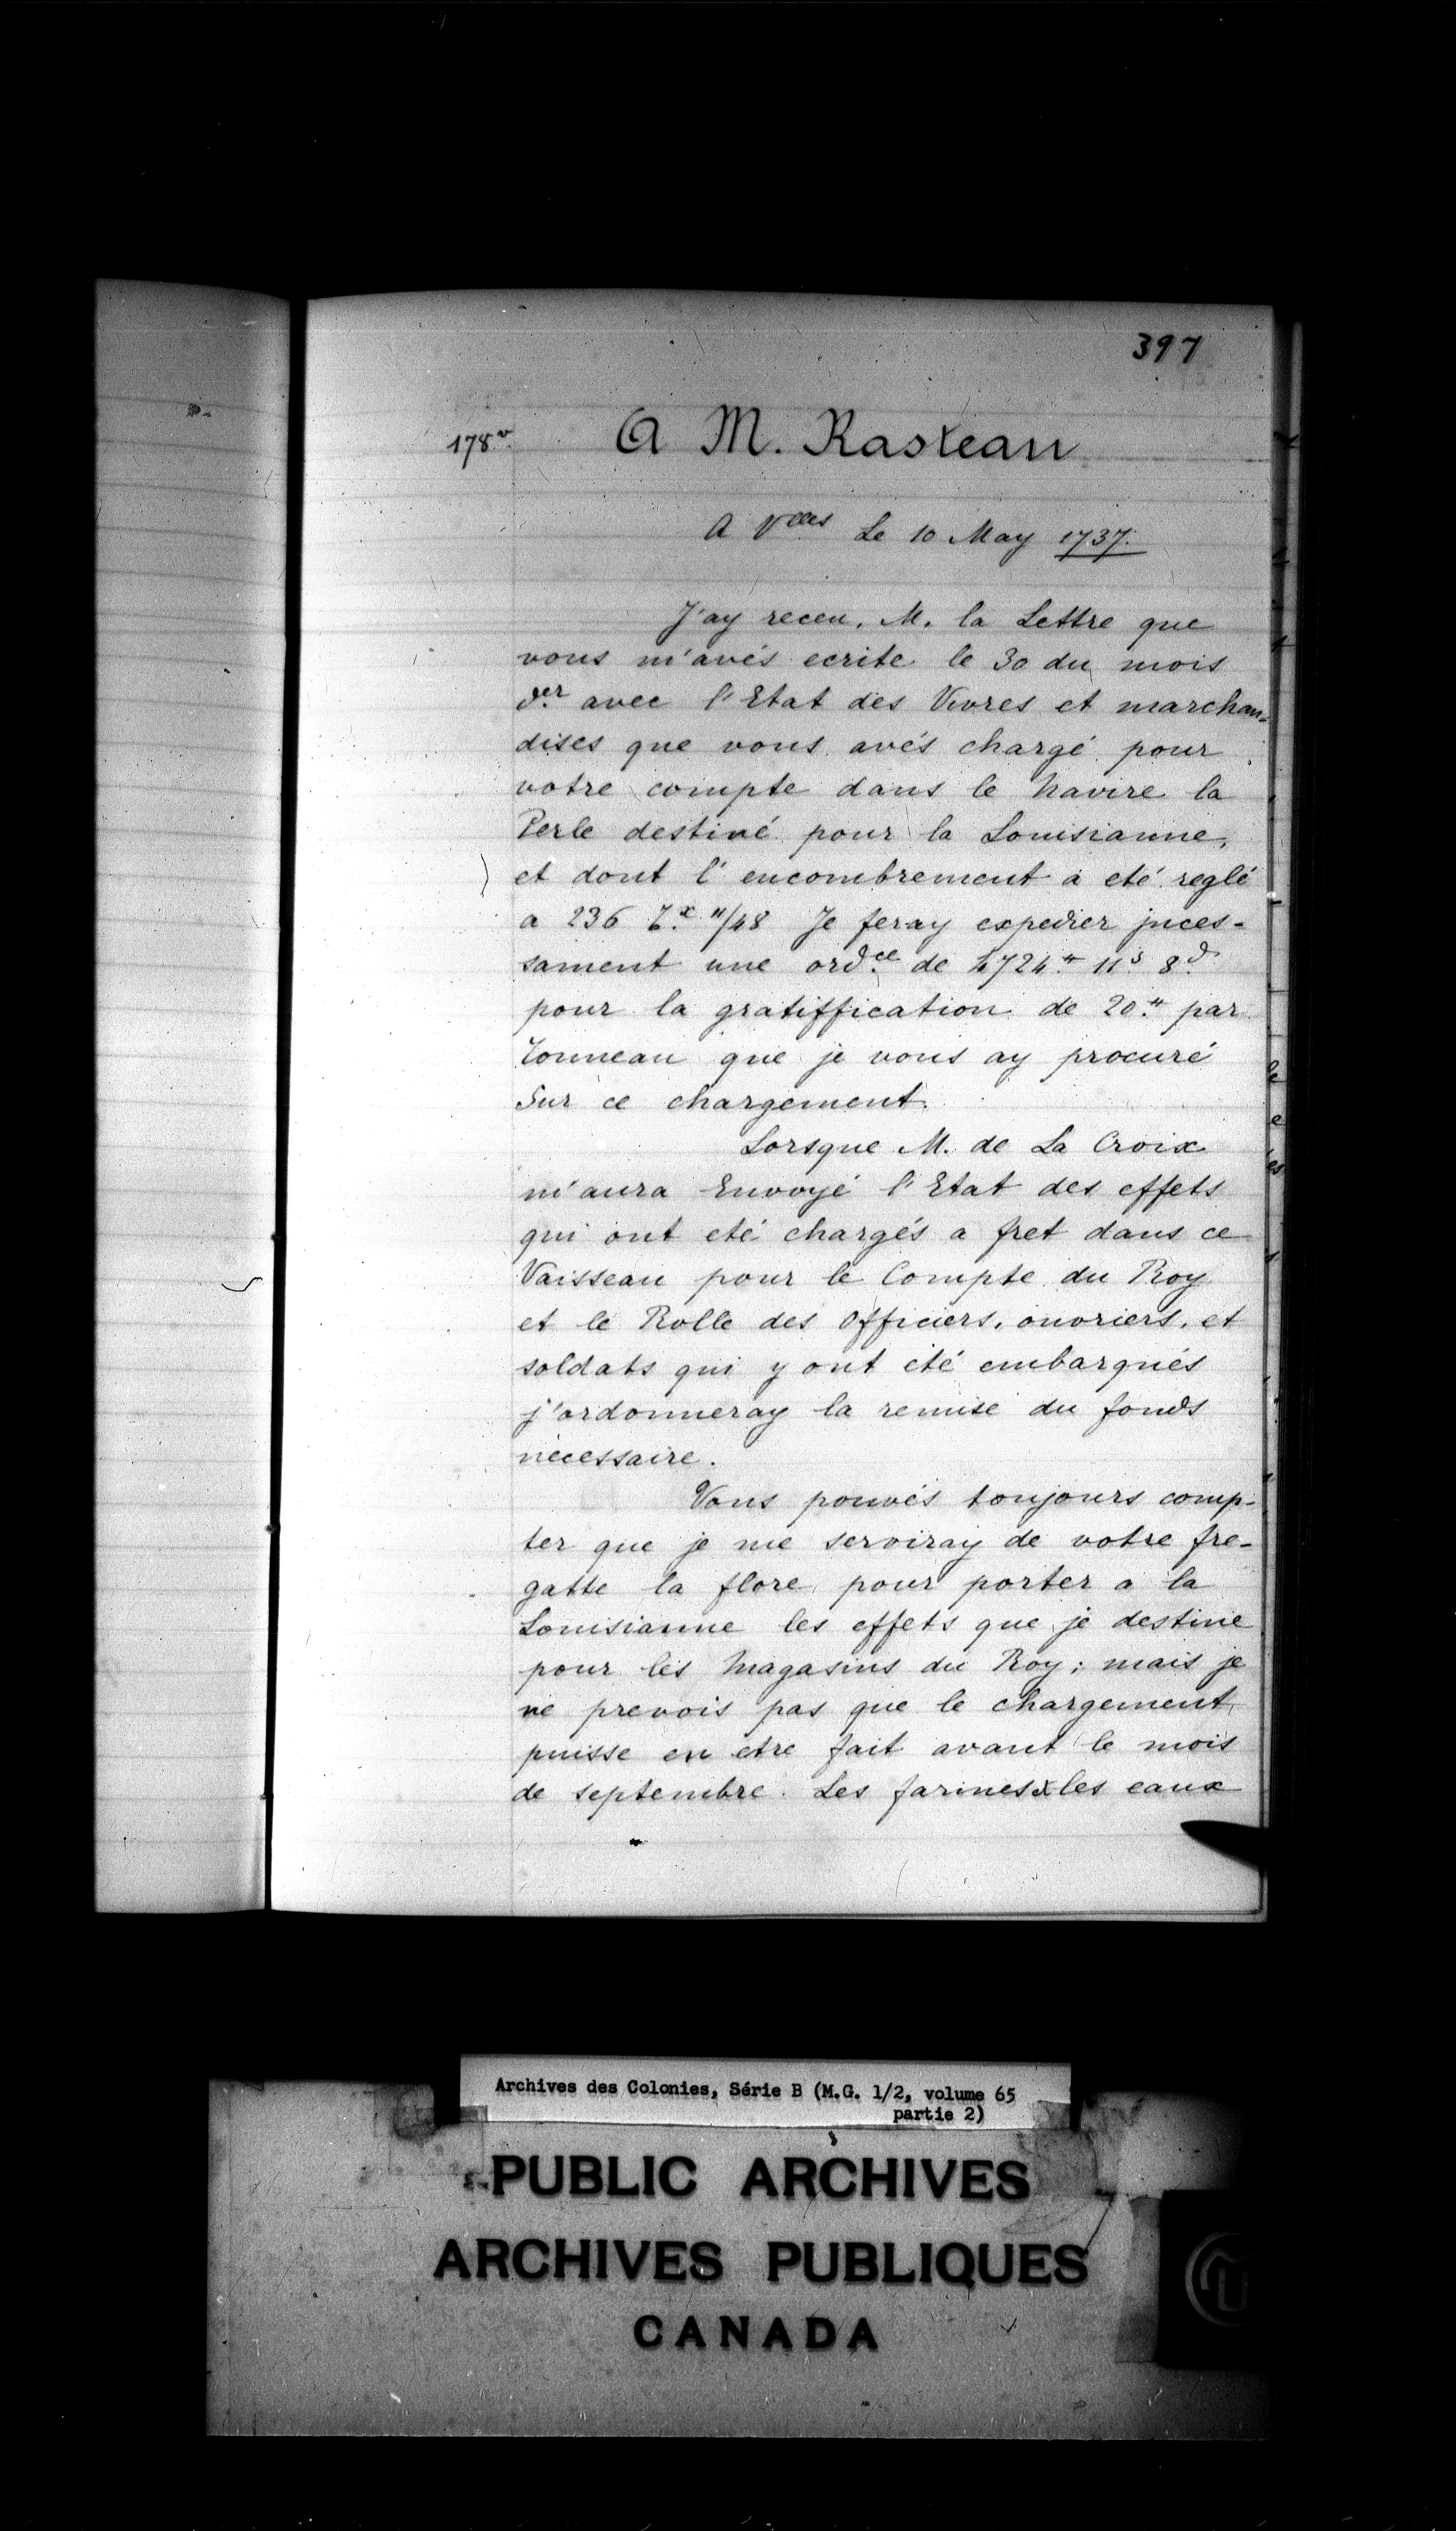 397
178v
A M. Rasteau
A Vlles Le 10 May 1737.
J'ay receu, M. la Lettre que
vous m'avés ecrite le 30 du mois
der avec l'Etat des Vivres et marchan-
dises que vous avés chargé pour
votre compte dans le Navire la
Perle destiné pour la Louisianne,
et dont l'encombrement a eté reglé
a 236 Tx 11/48 Je feray expedier jnces-
sament une ordce de 4724tt 11s 8d
pour la gratiffication de 20tt par
Tonneau que je vous ay procuré
Sur ce chargement.
Lorsque M. de La Croix
m'aura Envoyé l'Etat des effets
qui ont eté chargés a fret dans ce
Vaisseau pour le Compte du Roy
et le Rolle des Officiers, ouvriers, et
soldats qui y ont eté embarqués
j'ordonneray la remise du fonds
necessaire.
Vous pouvés toujours comp-
ter que je me serviray de votre fre-
gatte la flore pour porter a la
Louisianne les effets que je destine
pour les Magasins du Roy; mais je
ne prevois pas que le chargement
puisse en etre fait avant le mois
de septembre. Les farines & les eaux
Archives des Colonies, Série B (M.G. 1/2, volume 65
partie 2)
PUBLIC ARCHIVES
ARCHIVES PUBLIQUES
CANADA